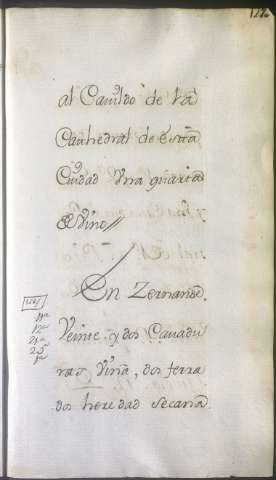 al Cavildo de la
Cathedral de Esta
Ciudad Una quarta
de Vino //
En Zernande.
Veinte, y dos Cavadu
ras Viña, dos ferra
dos heredad secana
11ª
12ª
21ª